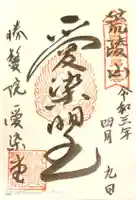 荒陵山
令和三年
四月九日
愛染明王
勝鬘院 愛染堂